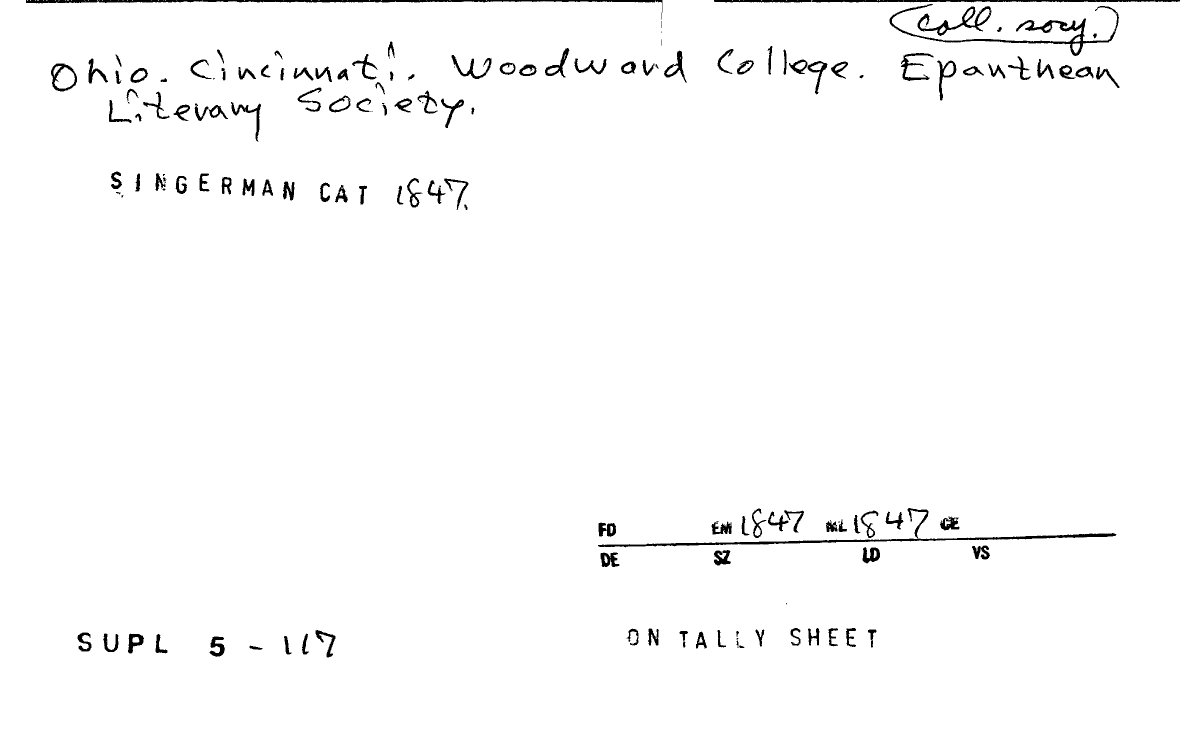 coll. socy.
Ohio. Cincinnati. Woodward College. Epanthean
Literary Society.
SINGERMAN CAT 1847.
FD EM 1847 ML 1847 CE
DE SZ LD VS
SUPL 5 - 117
ON TALLY SHEET